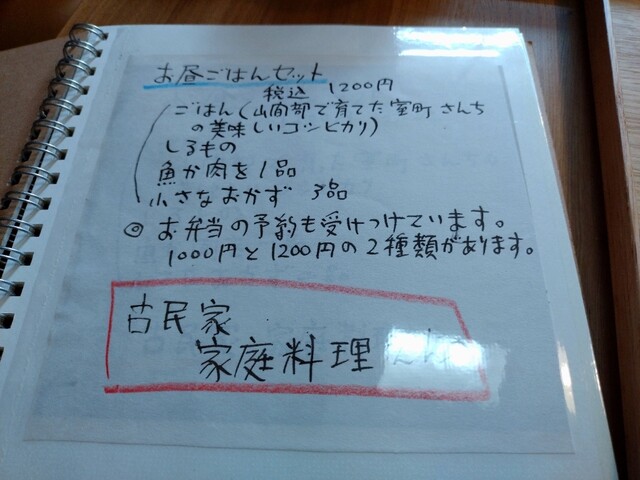 お昼ごはんセット
税込 1200円
ごはん(山間部で育てた室町さんち
の美味しいコシヒカリ)
しるもの
魚か肉を1品
小さなおかず 3品
◎ お弁当の予約も受けつけています。
1000円と1200円の2種類があります。
古民家
家庭料理